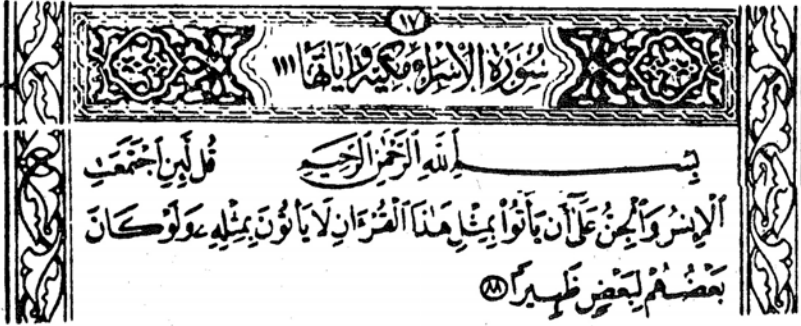 ١٧
سُورَةُ الْإِسْرَاءِ مَكِّيَّة وَآيَاتُهَا ١١١
بِسْمِ ٱللَّهِ ٱلرَّحْمَٰنِ ٱلرَّحِيمِ قُل لَّئِنِ ٱجْتَمَعَتِ
ٱلْإِنسُ وَٱلْجِنُّ عَلَىٰٓ أَن يَأْتُوا۟ بِمِثْلِ هَٰذَا ٱلْقُرْءَانِ لَا يَأْتُونَ بِمِثْلِهِۦ وَلَوْ كَانَ
بَعْضُهُمْ لِبَعْضٍ ظَهِيرًا ٨٨